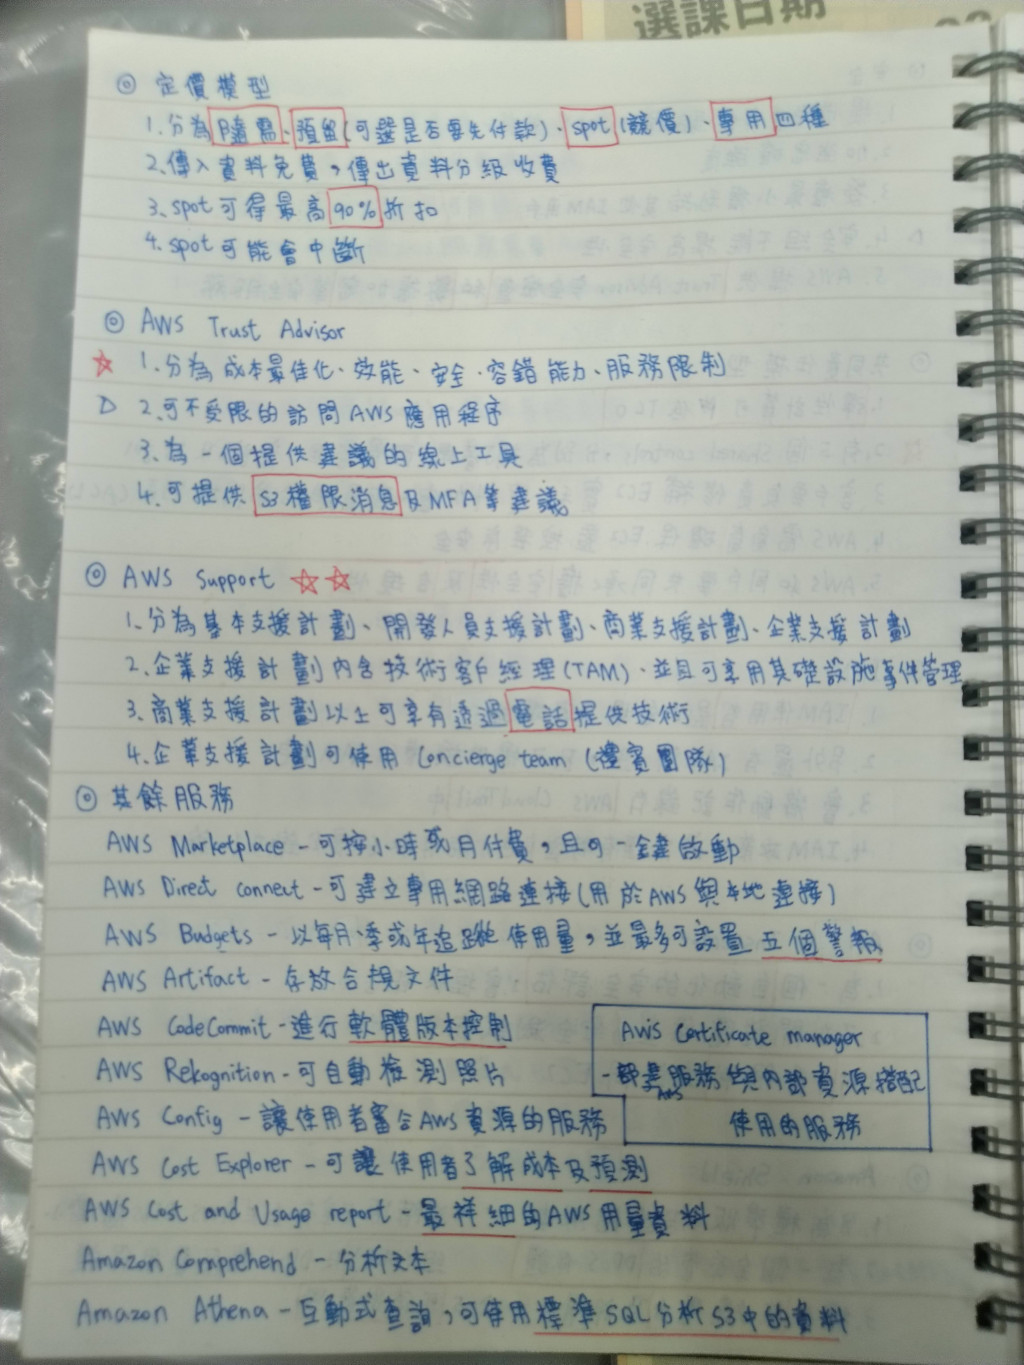 選課日期
◎ 定價模型
1.分為隨需、預留(可選是否要先付款)、spot(競價)、專用四種
2.傳入資料免費,傳出資料分級收費
3.spot可得最高90%折扣
4.spot可能會中斷
◎ AWS Trust Advisor
☆ 1.分為成本最佳化、效能、安全、容錯能力、服務限制
▷ 2.可不受限的訪問AWS應用程序
3.為一個提供建議的線上工具
4.可提供S3權限消息及MFA等建議
◎ AWS Support ☆☆
1.分為基本支援計劃、開發人員支援計劃、商業支援計劃、企業支援計劃
2.企業支援計劃內含技術客戶經理(TAM)、並且可享用基礎設施事件管理
3.商業支援計劃以上可享有透過電話提供技術
4.企業支援計劃可使用 Concierge team (禮賓團隊)
◎ 其餘服務
AWS Marketplace - 可按小時或月付費,且可一鍵啟動
AWS Direct connect - 可建立專用網路連接(用於AWS與本地連接)
AWS Budgets - 以每月、季或年追蹤使用量,並最多可設置五個警報
AWS Artifact - 存放合規文件
AWS CodeCommit - 進行軟體版本控制
AWS Rekognition - 可自動檢測照片
AWS Config - 讓使用者審合AWS資源的服務
AWS Certificate manager
- 部署AWS服務與內部資源搭配
使用的服務
AWS Cost Explorer - 可讓使用者了解成本及預測
AWS Cost and Usage report - 最祥細的AWS用量資料
Amazon Comprehend - 分析文本
Amazon Athena - 互動式查詢,可使用標準SQL分析S3中的資料